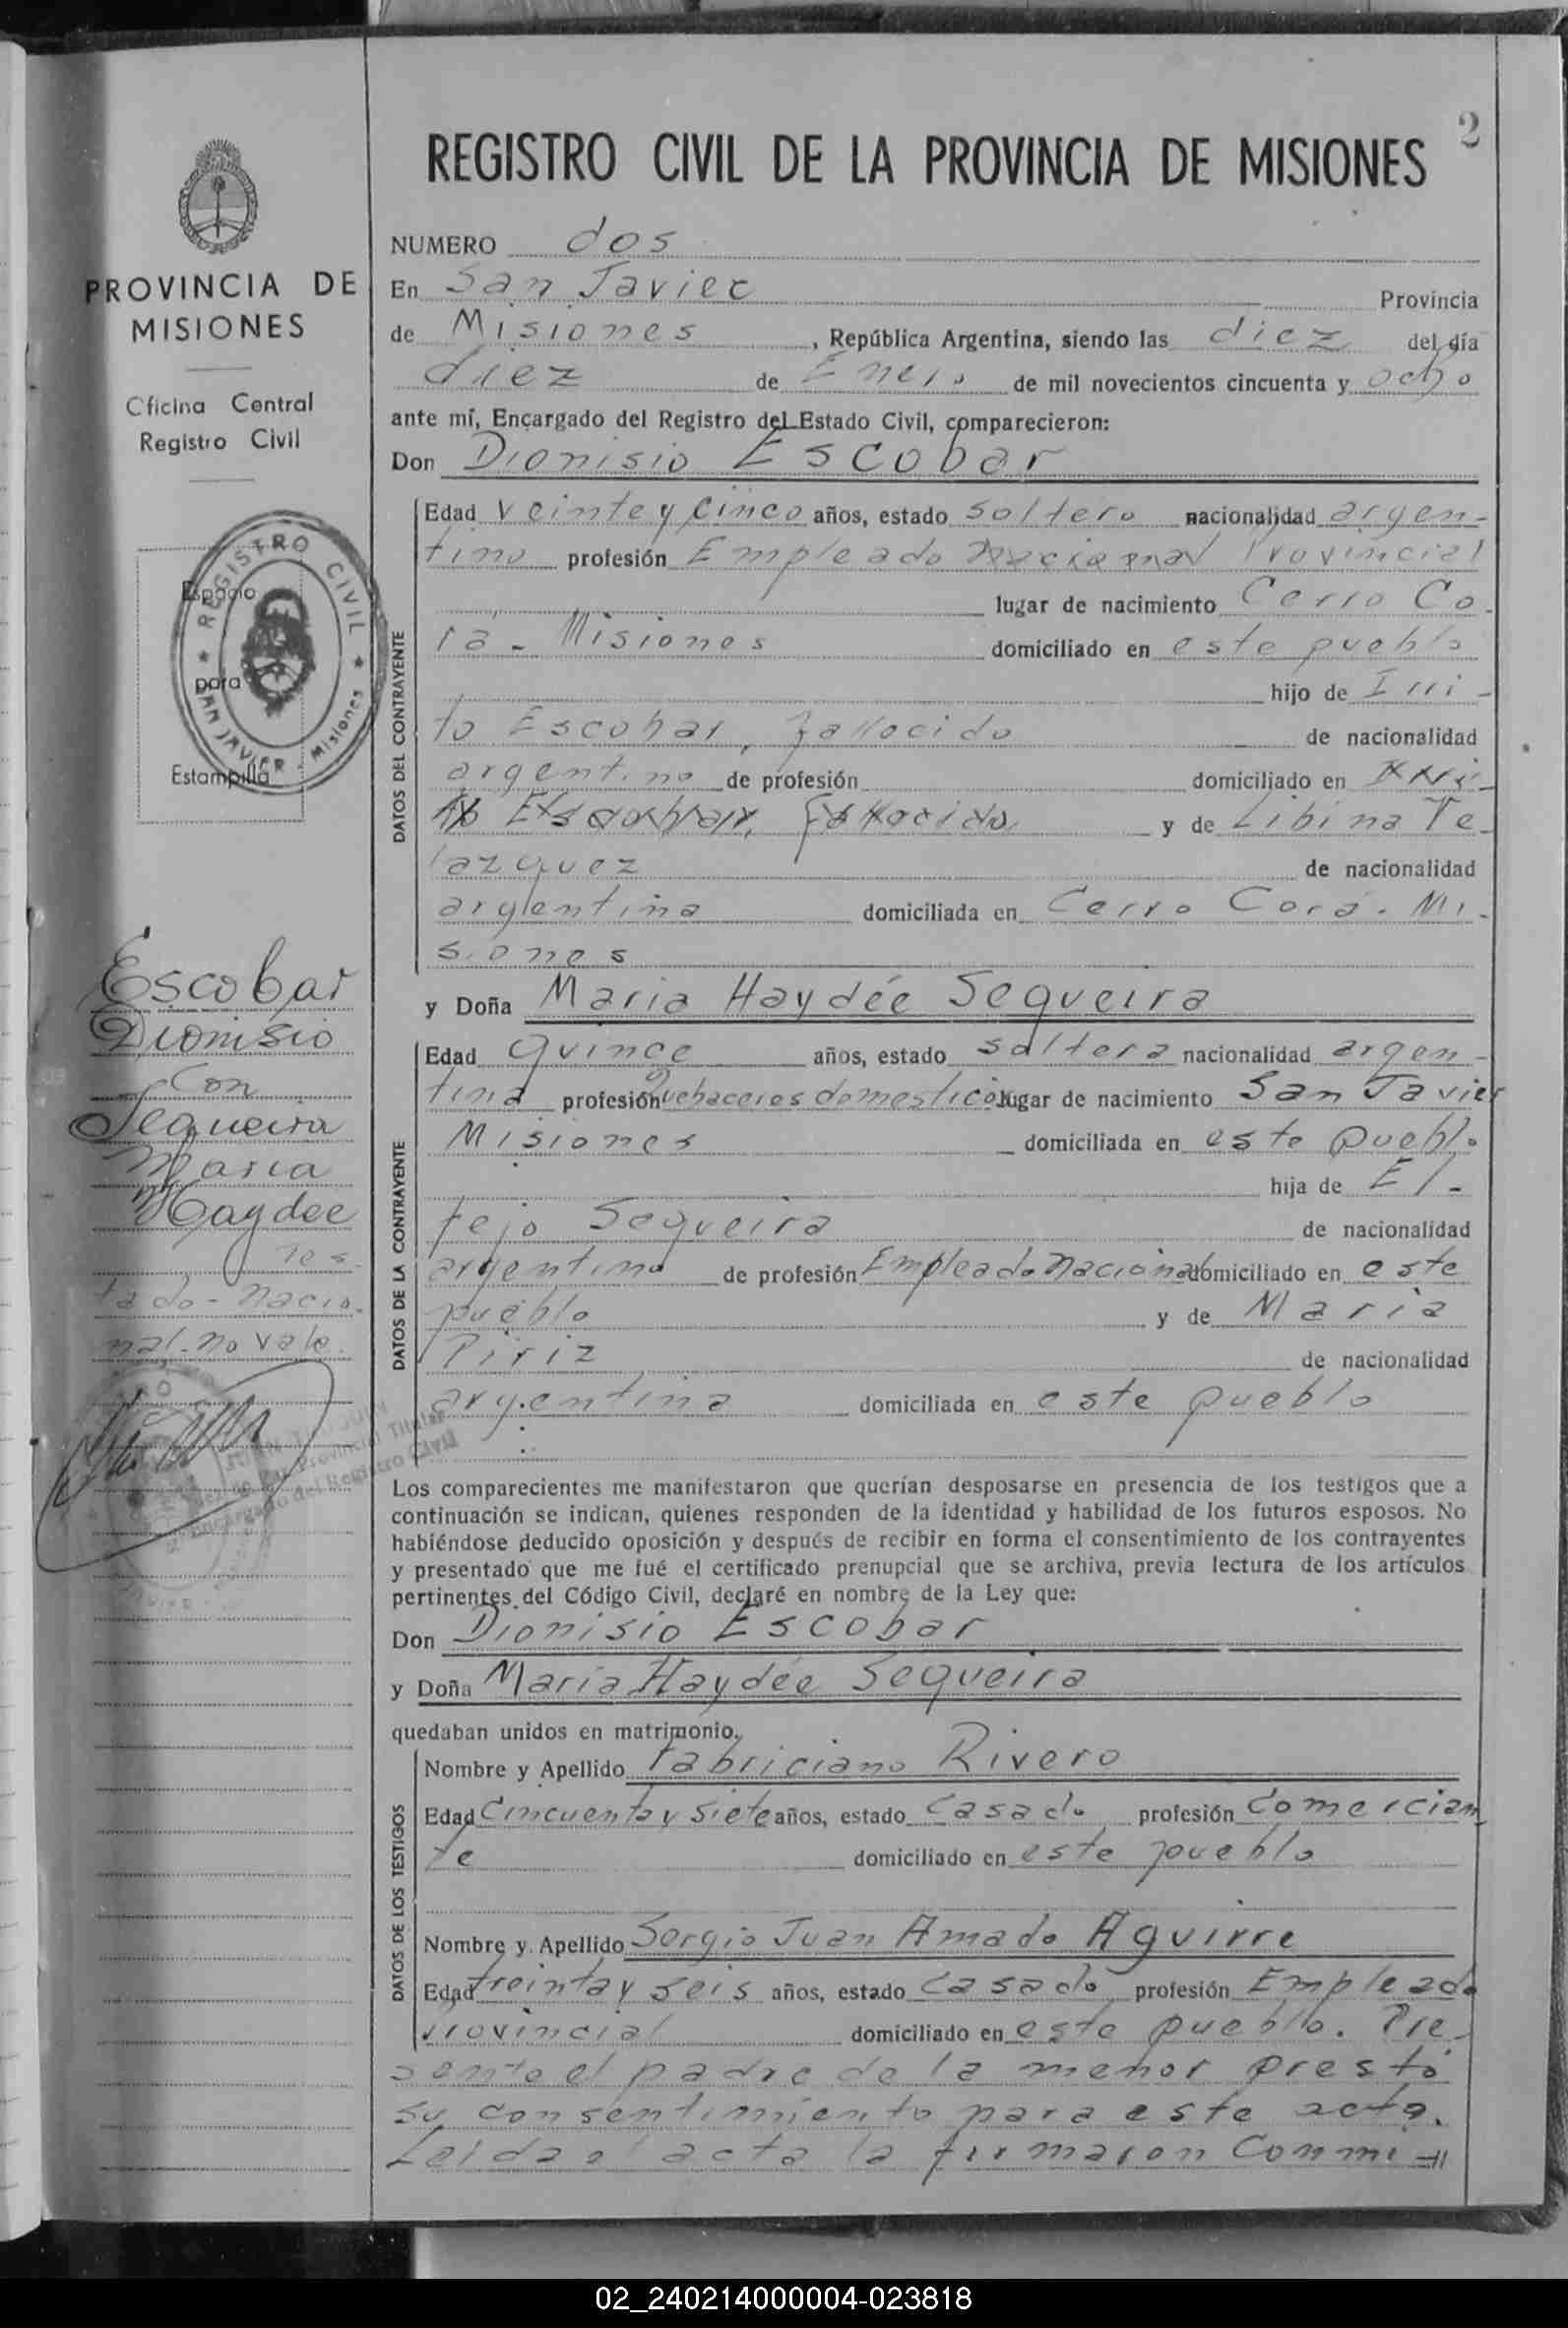 2
REGISTRO CIVIL DE LA PROVINCIA DE MISIONES
PROVINCIA DE
MISIONES
Oficina Central
Registro Civil
REGISTRO CIVIL
SAN JAVIER - Misiones
Espacio
para
Estampilla
Escobar
Dionisio
Con
Sequeira
Maria
Haydee
Tes
tado - nacio
nal - no vale.
Encargado del Registro Civil
NUMERO dos
En San Javier Provincia
de Misiones, República Argentina, siendo las diez del día
diez de Enero de mil novecientos cincuenta y ocho
ante mí, Encargado del Registro del Estado Civil, comparecieron:
Don Dionisio Escobar
DATOS DEL CONTRAYENTE
Edad veinte y cinco años, estado soltero nacionalidad argen-
tino profesión Empleado nacional Provincial
lugar de nacimiento Cerro Co-
rá - Misiones domiciliado en este pueblo
hijo de Irri-
to Escobar, fallecido de nacionalidad
argentino de profesión domiciliado en Irri-
to Escobar, fallecido y de Libina Ve-
lazquez de nacionalidad
argentina domiciliada en Cerro Corá. Mi-
siones
y Doña Maria Haydée Sequeira
DATOS DE LA CONTRAYENTE
Edad quince años, estado soltera nacionalidad argen-
tina profesión Quehaceres domesticos lugar de nacimiento San Javier
Misiones domiciliada en este pueblo
hija de El-
fejo Sequeira de nacionalidad
argentino de profesión Empleado Nacional domiciliado en este
pueblo y de Maria
Piriz de nacionalidad
argentina domiciliada en este pueblo
Los comparecientes me manifestaron que querían desposarse en presencia de los testigos que a
continuación se indican, quienes responden de la identidad y habilidad de los futuros esposos. No
habiéndose deducido oposición y después de recibir en forma el consentimiento de los contrayentes
y presentado que me fué el certificado prenupcial que se archiva, previa lectura de los artículos
pertinentes del Código Civil, declaré en nombre de la Ley que:
Don Dionisio Escobar
y Doña María Haydée Sequeira
quedaban unidos en matrimonio.
DATOS DE LOS TESTIGOS
Nombre y Apellido Fabriciano Rivero
Edad Cincuenta y siete años, estado Casado profesión Comercian
te domiciliado en este pueblo
Nombre y Apellido Sergio Juan Amado Aguirre
Edad treinta y seis años, estado Casado profesión Empleado
Provincial domiciliado en este pueblo. Pre-
sente el padre de la menor prestó
su consentimiento para este acto.
Leida el acta la firmaron conmi =
02_240214000004-023818